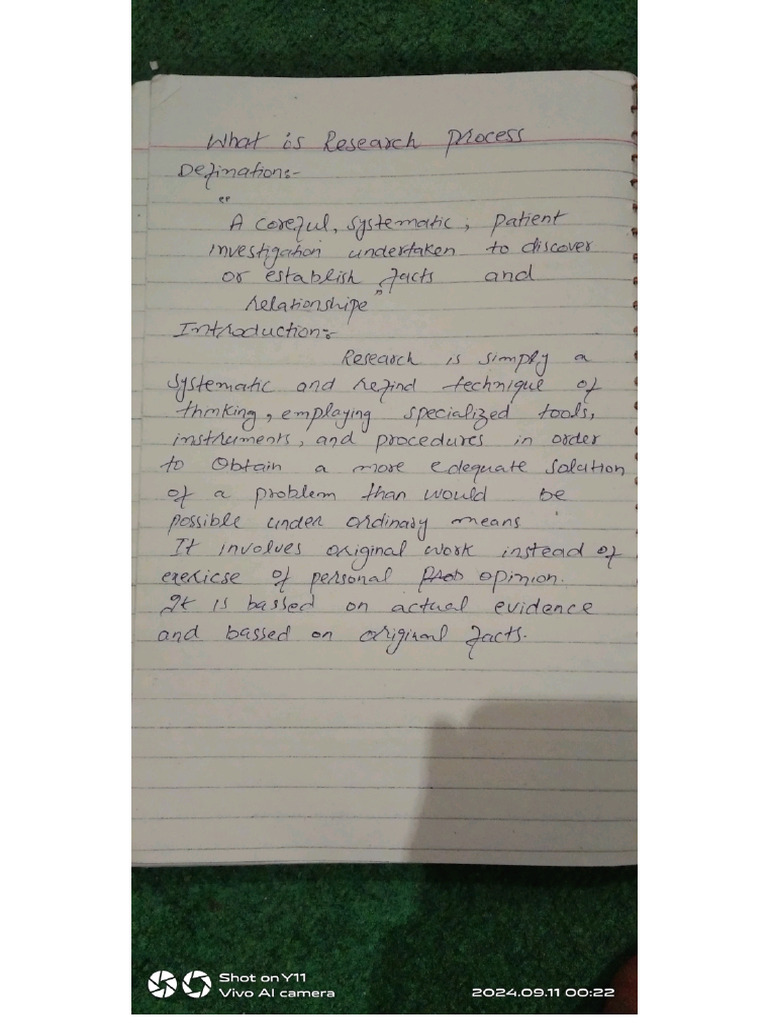 What is Research Process
Defination:-
"
A coreful, systematic, patient
investigation undertaken to discover
or establish facts and
relationshipe"
Introduction:-
Research is simply a
systematic and refind technique of
thinking, emplaying specialized tools,
instruments, and procedures in order
to Obtain a more edequate solution
of a problem than would be
possible under ordinary means
It involves original work instead of
exericse of personal opinion.
It is bassed on actual evidence
and bassed on original facts.
Shot on Y11
Vivo AI camera
2024.09.11 00:22